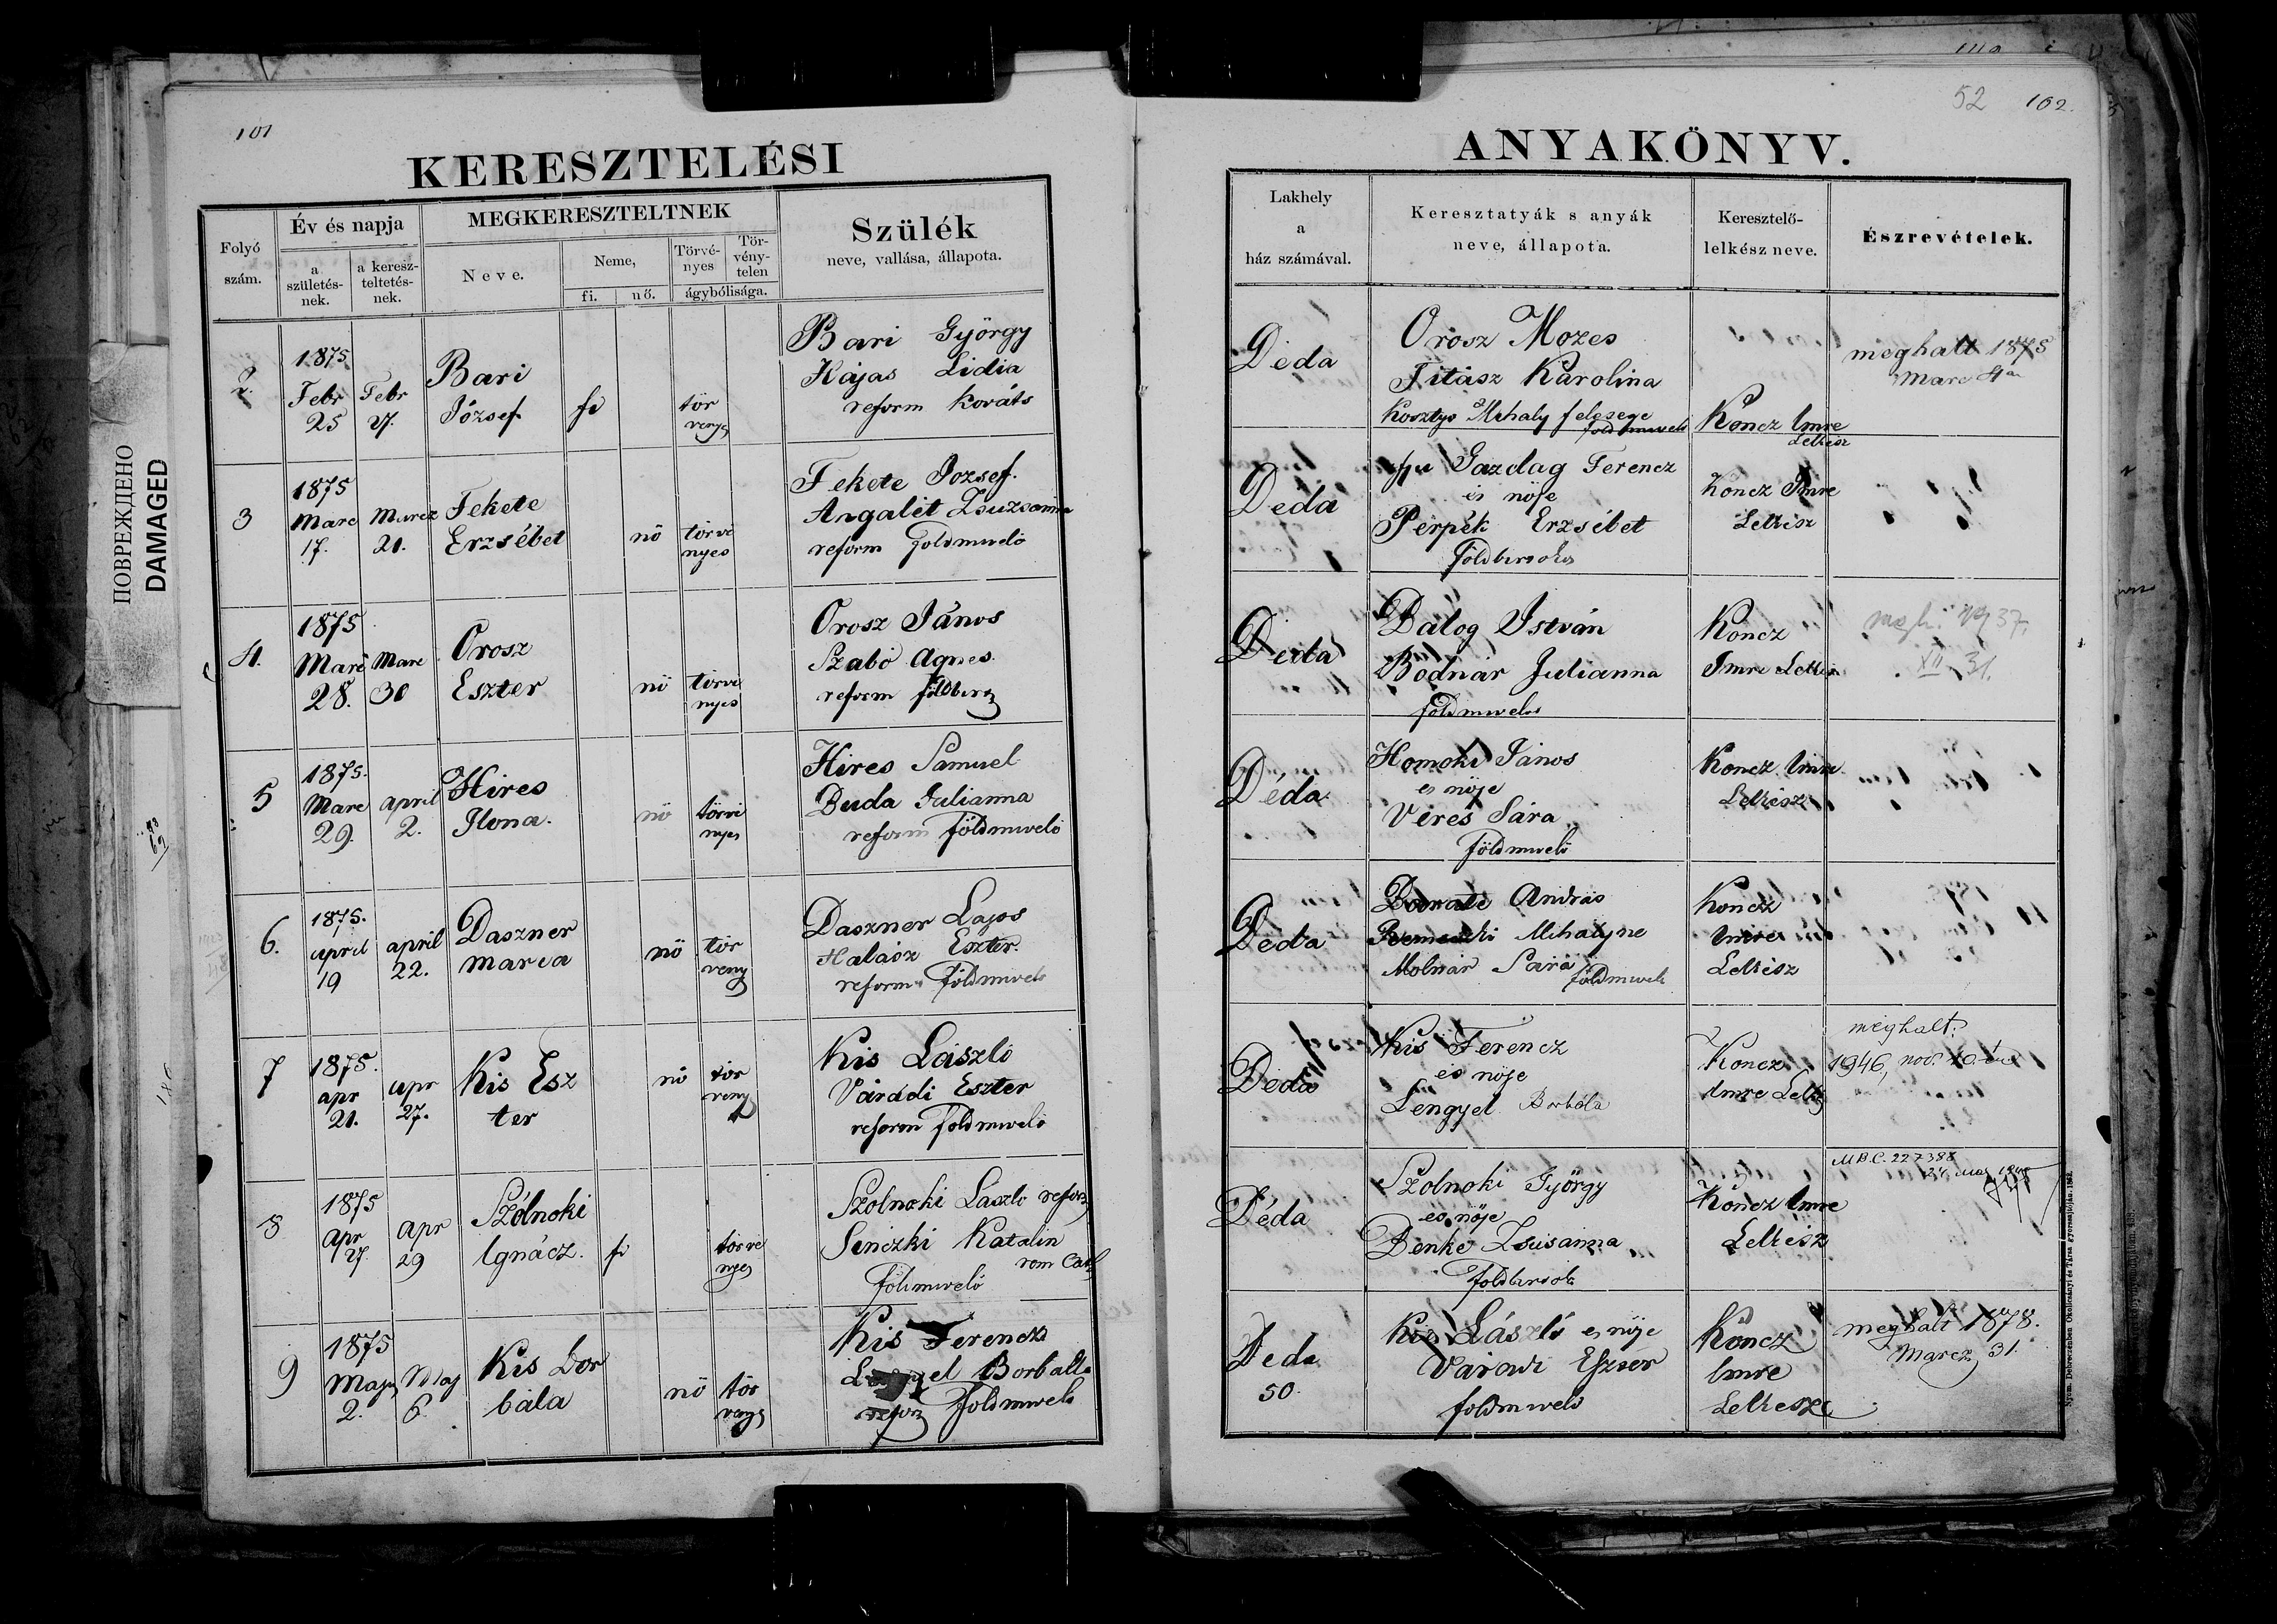 101
KERESZTELÉSI
Folyó szám.
Év és napja
a születés-nek.
a keresz-teltetés-nek.
MEGKERESZTELTNEK
Neve.
Neme,
fi.
nő.
Törvé-nyes
Tör-vény-telen
ágybólisága.
Szülék
neve, vallása, állapota.
2.
1875
Febr
25
Febr
27.
Bari
József
fi
tör
venyes
Bari György
Kajas Lidia
reform Kováts
3
1875
Marc
17.
Marcz
21.
Fekete
Erzsébet
nö
törvé
nyes
Fekete Jozsef.
Angalét Zsuzsanna
reform földmivelö
4.
1875
Marc
28.
Marc
30
Orosz
Eszter
nö
törvé
nyes
Orosz János
Szabó Agnes.
reform földbirs
5
1875.
Marc
29.
april
2.
Hires
Ilona.
nö
törvé
nyes
Hires Samuel
Buda Julianna
reform földmivelö
6.
1875.
april
19
april
22.
Daszner
maria
nö
tör
veny
Daszner Lajos
Halász Eszter.
reform földmivelö
7
1875.
apr
21.
apr
27.
Kis Esz
ter
nö
tör
veny
Kis László
Váradi Eszter
reform földmivelö
8
1875
Apr
27.
apr
29
Szólnoki
Ignácz.
fi
törvé
nyes
Szolnoki Laszlo reform
Sinczki Katalin
rom Cath
földmivelö
9
1875
Maj
2.
Maj
6
Kis Bor
bála
nö
tör
venyes
Kis Ferencz
Lengyel Borbala
reform földmivelö
52 102.
ANYAKÖNYV.
Lakhely
a
ház számával.
Keresztatyák s anyák
neve, állapota.
Keresztelő-
lelkész neve.
Észrevételek.
Déda
Orosz Mozes
Titász Karolina
Kosztyo Mihaly felesege
földmivelö
Koncz Imre
Lelkész
meghalt 1875
Marc 4én
Déda
Gazdag Ferencz
és nöje
Perpék Erzsébet
földbirtokos
Koncz Imre
Lelkész
Deda
Balog István
Bodnár Julianna
földmivelös
Koncz
Imre Lelkész
megh. 1937.
XII 31.
Déda
Homoki János
es nöje
Veres Sára
földmivelö
Koncz Imre
Lelkész
Déda
András
Mihalyne
Molnár Sara
földmivelö
Koncz
Imre
Lelkész
Déda
Kis Ferencz
es nöje
Lengyel Borbála
Koncz
Imre Lelkész
meghalt.
1946, nov.
Déda
Szolnoki György
es nöje
Benke Zsusanna
földbirtok
Koncz Imre
Lelkész
M.B.C. 227388
Deda
50.
Kis László es nöje
Váradi Eszter
földmivelö
Koncz
Imre
Lelkesze
meghalt 1878.
Marcz 31.
ПОВРЕЖДЕНО
DAMAGED